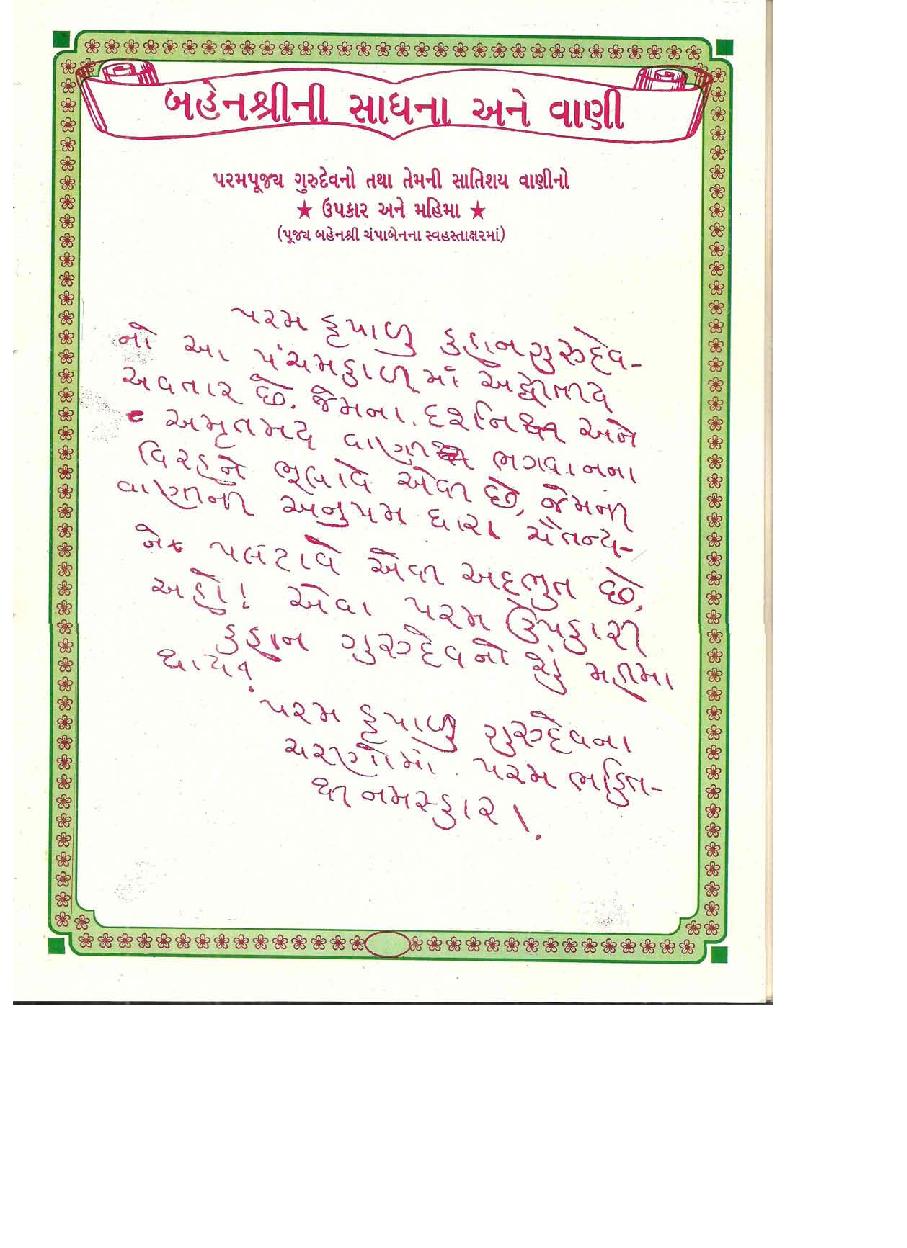 બહેનશ્રીની સાધના અને વાણી
પરમપૂજ્ય ગુરુદેવનો તથા તેમની સાતિશય વાણીનો
★ ઉપકાર અને મહિમા ★
(પૂજ્ય બહેનશ્રી ચંપાબેનના સ્વહસ્તાક્ષરમાં)
પરમ કૃપાળુ કહાનગુરુદેવ-
નો આ પંચમકાળમાં અદ્વીતીય
અવતાર છે. જેમના દર્શન અને
અમૃતમય વાણી ભગવાનના
વિરહને ભૂલાવે એવી છે, જેમની
વાણીની અનુપમ ધારા ચૈતન્ય-
ને પલટાવે એવી અદ્ભુત છે,
અહો! એવા પરમ ઉપકારી
કહાન ગુરુદેવનો શું મહીમા
થાય?
પરમ કૃપાળુ ગુરુદેવના
ચરણોમાં પરમ ભક્તિ-
થી નમસ્કાર.